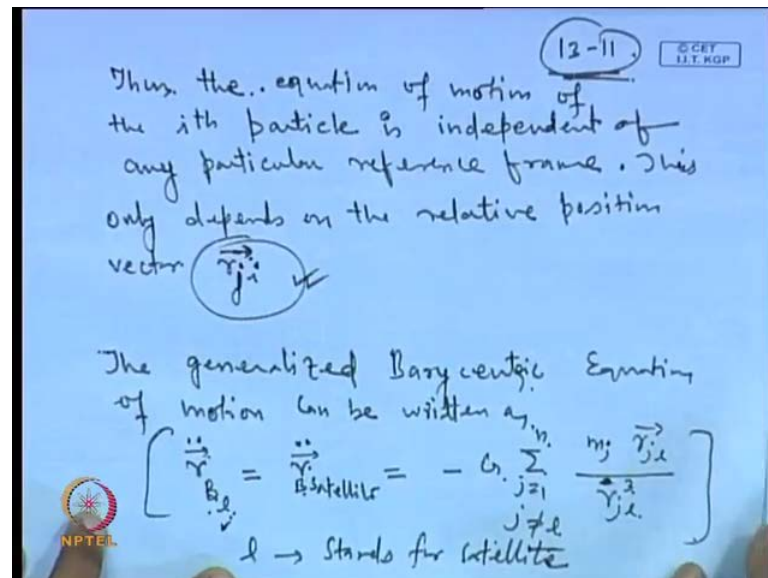 13-11
© CET
I.I.T. KGP
Thus the equation of motion of
the ith particle is independent of
any particular reference frame. This
only depends on the relative position
vector \vec{r_{ji}}
The generalized Barycentric Equation
of motion can be written as
[ \ddot{\vec{r}}_{Bl} = \ddot{\vec{r}}_{B Satellite} = - G \sum_{j=1, j≠l}^{n} \frac{m_j \vec{r_{jl}}}{r_{jl}^3} ]
l → Stands for Satellite
NPTEL